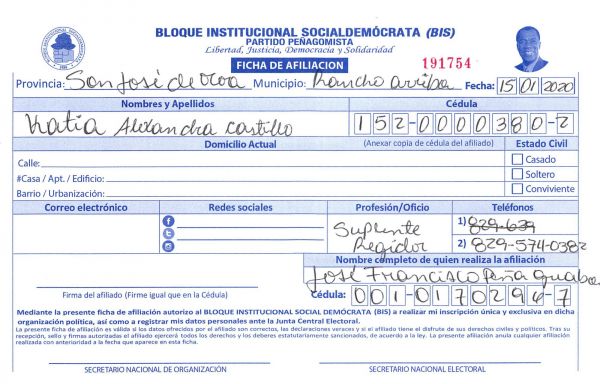 BLOQUE INSTITUCIONAL SOCIALDEMÓCRATA (BIS)
PARTIDO PEÑAGOMISTA
Libertad, Justicia, Democracia y Solidaridad
FICHA DE AFILIACION
191754
Provincia: San José de Ocoa Municipio: Rancho arriba Fecha: 15 01 2020
Nombres y Apellidos Cédula
Katia Alexandra Castillo 152-0000380-2
Domicilio Actual (Anexar copia de cédula del afiliado) Estado Civil
Calle: Casado
#Casa / Apt. / Edificio: Soltero
Barrio / Urbanización: Conviviente
Correo electrónico Redes sociales Profesión/Oficio Teléfonos
Suplente Regidor
1) 829-639
2) 829-574-0382
Nombre completo de quien realiza la afiliación
José Francisco Peña Guaba
Firma del afiliado (Firme igual que en la Cédula) Cédula: 001-0170294-7
Mediante la presente ficha de afiliación autorizo al BLOQUE INSTITUCIONAL SOCIAL DEMÓCRATA (BIS) a realizar mi inscripción única y exclusiva en dicha
organización política, así como a registrar mis datos personales ante la Junta Central Electoral.
La presente ficha de afiliación es válida si los datos ofrecidos por el afiliado son correctos, las declaraciones veraces y si el afiliado tiene el disfrute de sus derechos civiles y políticos. Tras su
recepción, sello y firmas autorizadas el afiliado ejercerá todos los derechos y los deberes estatutariamente sancionados, de acuerdo a la ley. La presente afiliación anula cualquier afiliación
realizada con anterioridad a la fecha que aparece en esta ficha.
SECRETARIO NACIONAL DE ORGANIZACIÓN SECRETARIO NACIONAL ELECTORAL